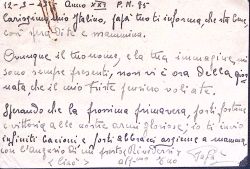 12-3- Anno XXI P.M. 95
Carissimo mio Italino, papà tuo ti informa che sta bene
così spera di te e mammina.
Ovunque il tuo nome, e la tua immagine, mi
sono sempre presenti, non vi è ora della gior
nata che il mio triste pensiero voliate.
Sperando che la prossima primavera, porti fortuna
e vittoria alle nostre armi gloriose, io ti invio
infiniti bacioni e forti abbracci assieme a mamma
con l'augurio di un presto Rivederci
"Ciao" aff.mo tuo Papà